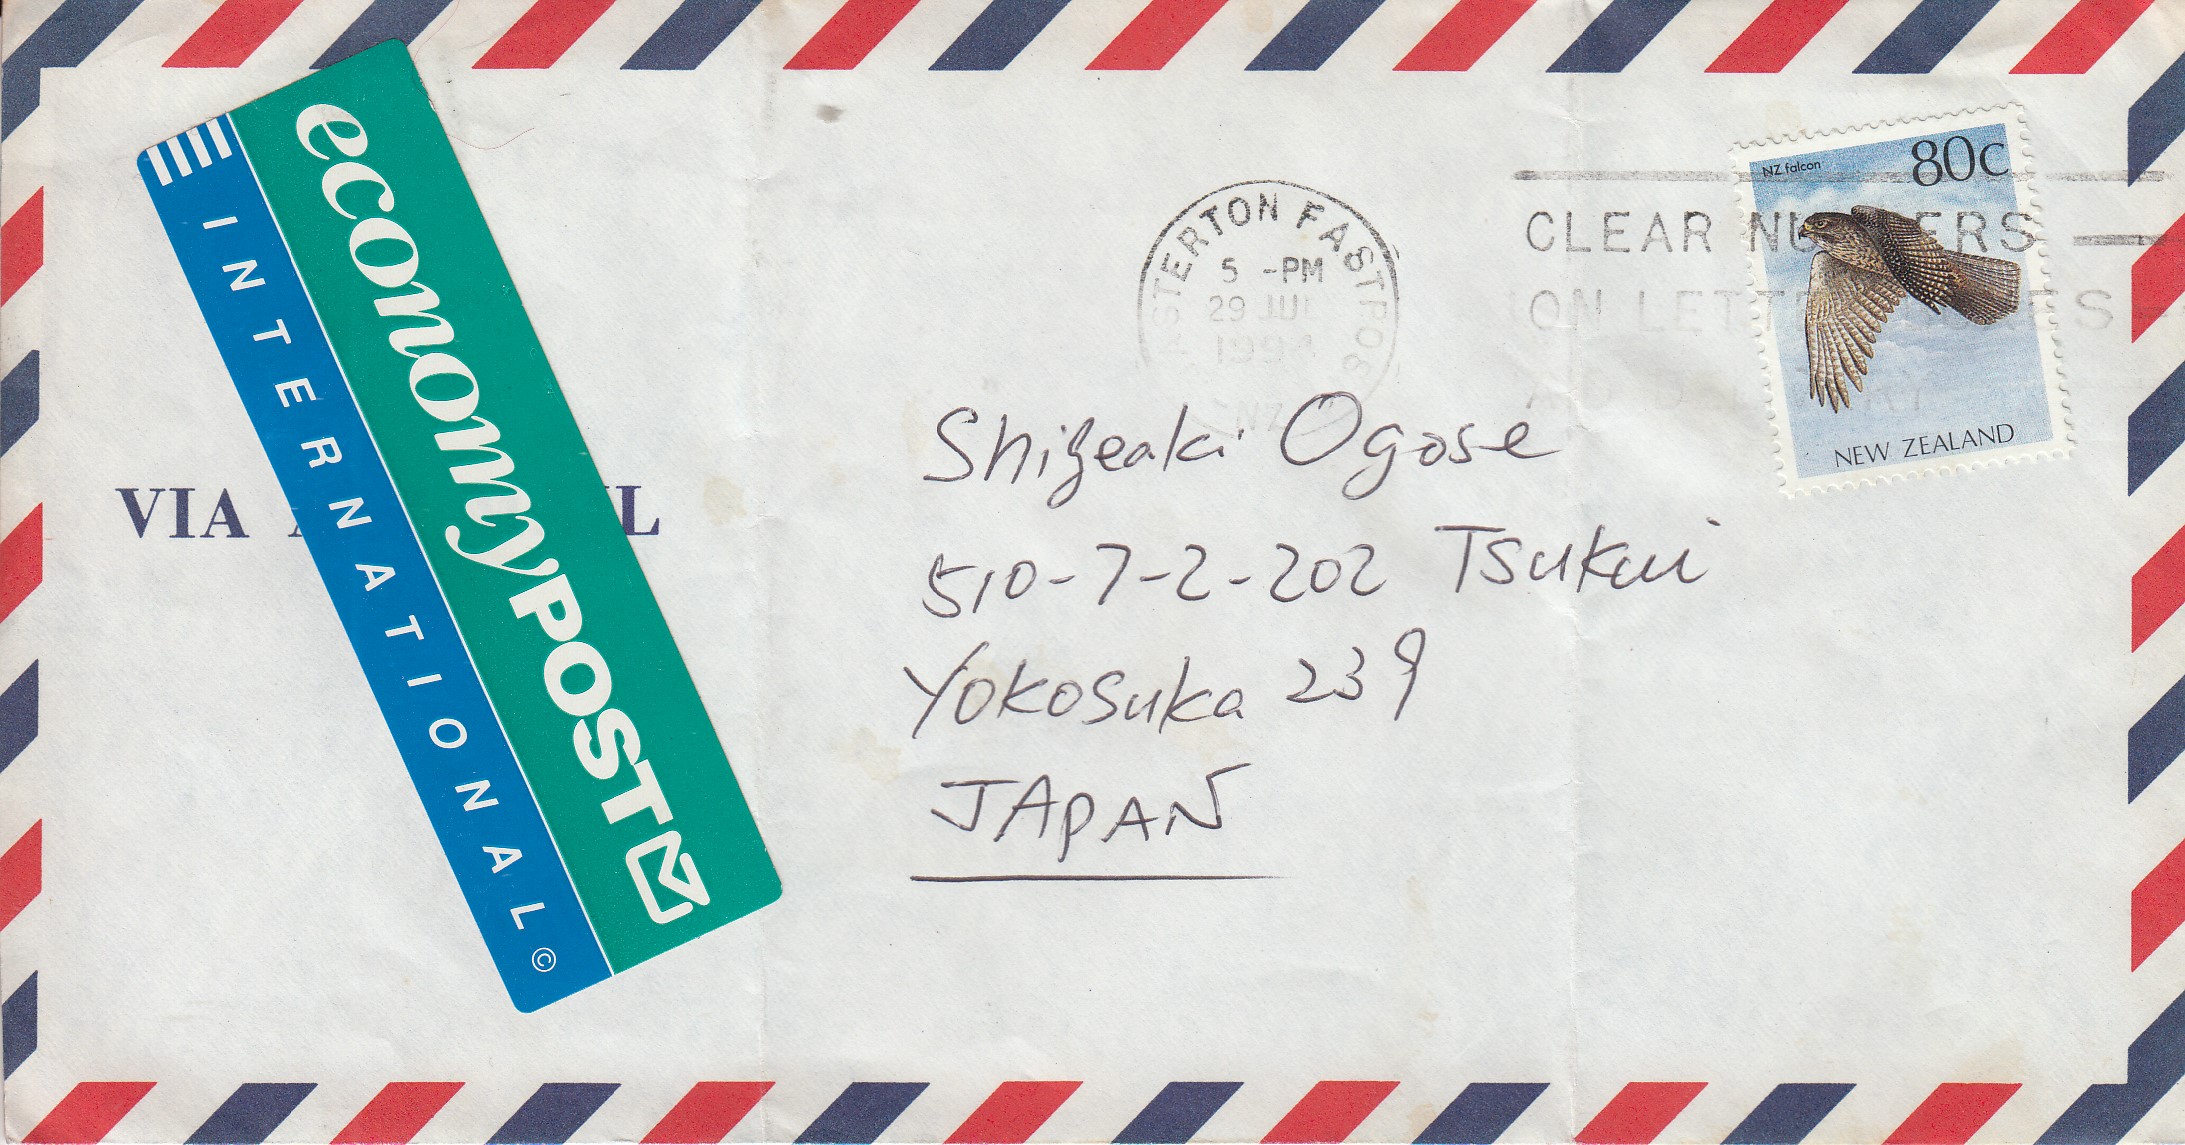 economyPOST
INTERNATIONAL ©
VIA
STERTON FASTPOS
5 -PM
29 JUL
1994
NZ
CLEAR
ON
NZ falcon
80c
NEW ZEALAND
Shigeaki Ogose
510-7-2-202 Tsukui
Yokosuka 239
JAPAN